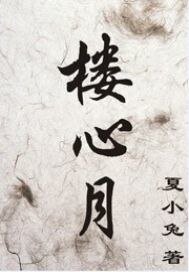 楼心月
夏小兔 著